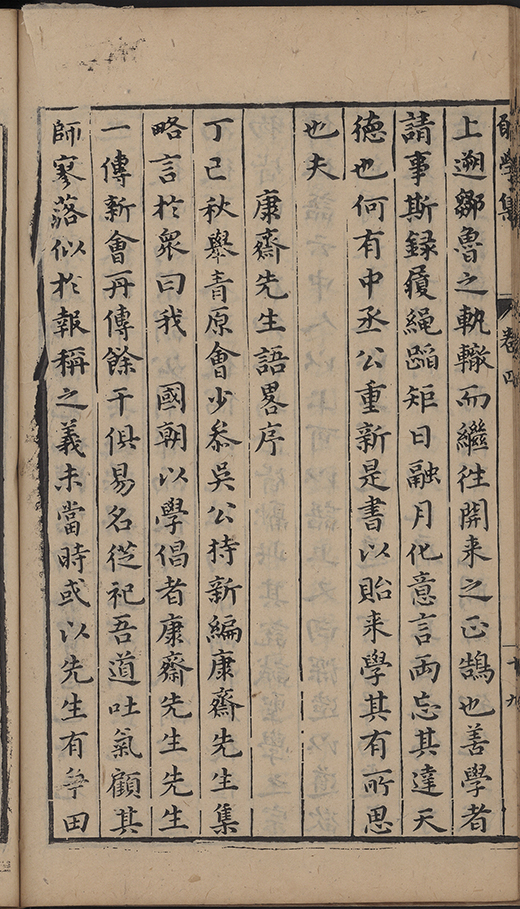 願學集 卷四 十九
上遡鄒魯之軌轍而繼往開来之正鵠也善學者
請事斯録履繩蹈矩日融月化意言両忘其達天
德也何有中丞公重新是書以貽来學其有所思
也夫
康齋先生語畧序
丁已秋舉青原會少叅吳公持新編康齋先生集
略言於衆曰我 國朝以學倡者康齋先生先生
一傳新會再傳餘干俱易名從祀吾道吐氣顧其
師寥落似於報稱之義未當時或以先生有爭田